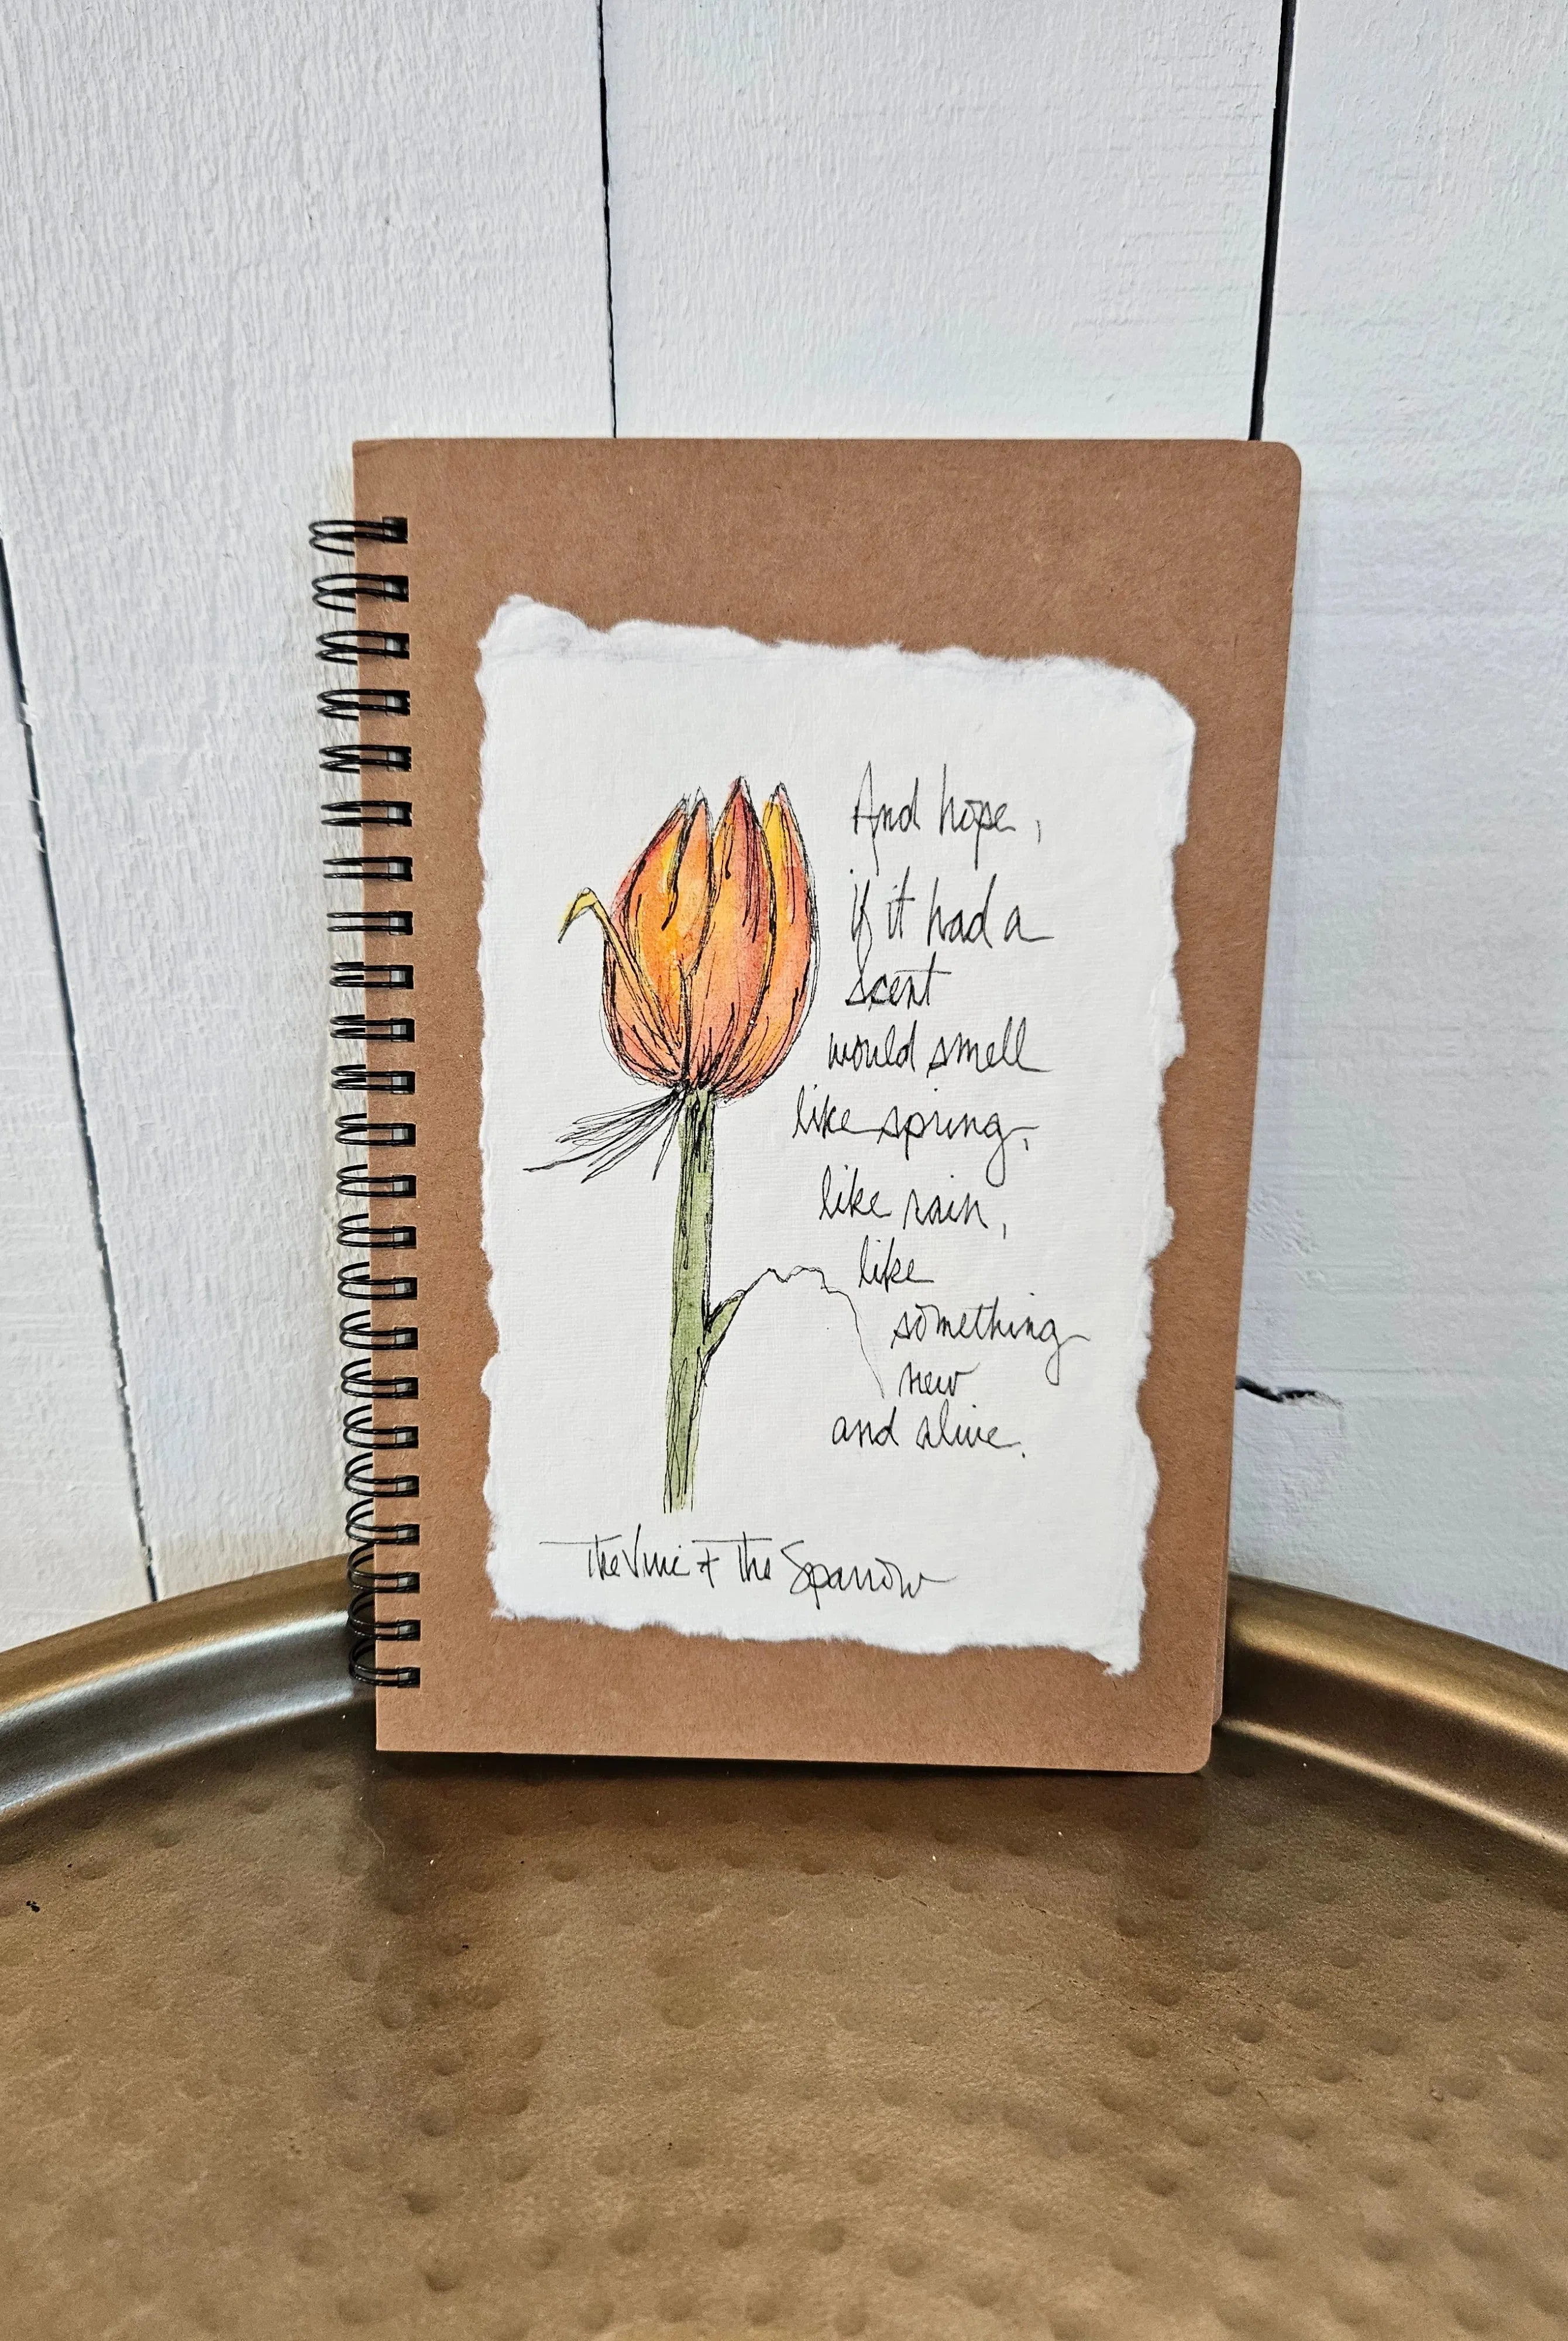 And hope,
if it had a
scent
would smell
like spring,
like rain,
like
something
new
and alive.
The Vine & The Sparrow